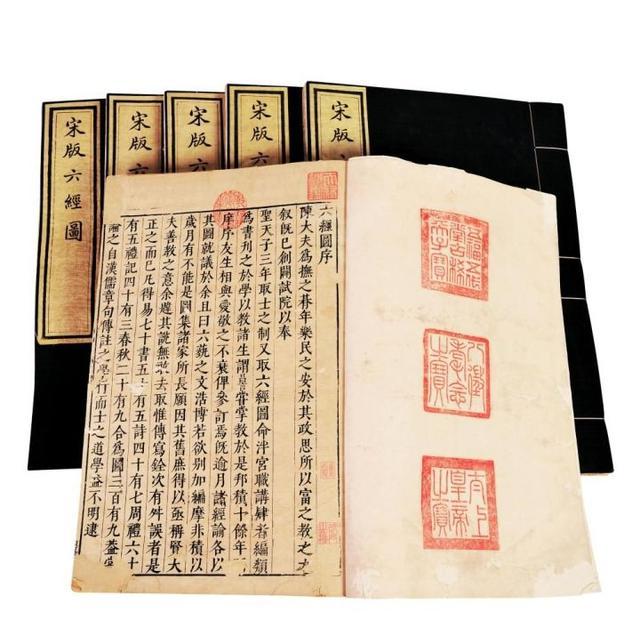 宋版六經圖
宋版六
宋版六
宋版六
宋版
六經圖序
陳大夫爲撫之朞年樂民之安於其政思所以富之教之
叙既已創闢試院以奉
聖天子三年取士之制又取六經圖命泮宮職講肄者編類
爲書刊之於學以教諸生謂嘗掌教於是邦積十餘年
庠序友生相與愛敬之不衰俾參訂焉既逾月諸經論各以
其圖就議於余且曰六藝之文浩博若欲别加編摩非積以
歲月有不能是圖集諸家所長願因其舊庶得以亟稱賢大
夫善教之意余嘉其説無去取惟傳寫銓次有舛誤者是
正之而已凡得易七十書五十有五詩四十有七周禮六十
有五禮記四十有三春秋二十有九合爲圖三百有九蓋嘗
之自漢儒章句傳註之學行而士之道學益不明逮
五福五代堂古稀天子寶
八徵耄念之寶
太上皇帝之寶